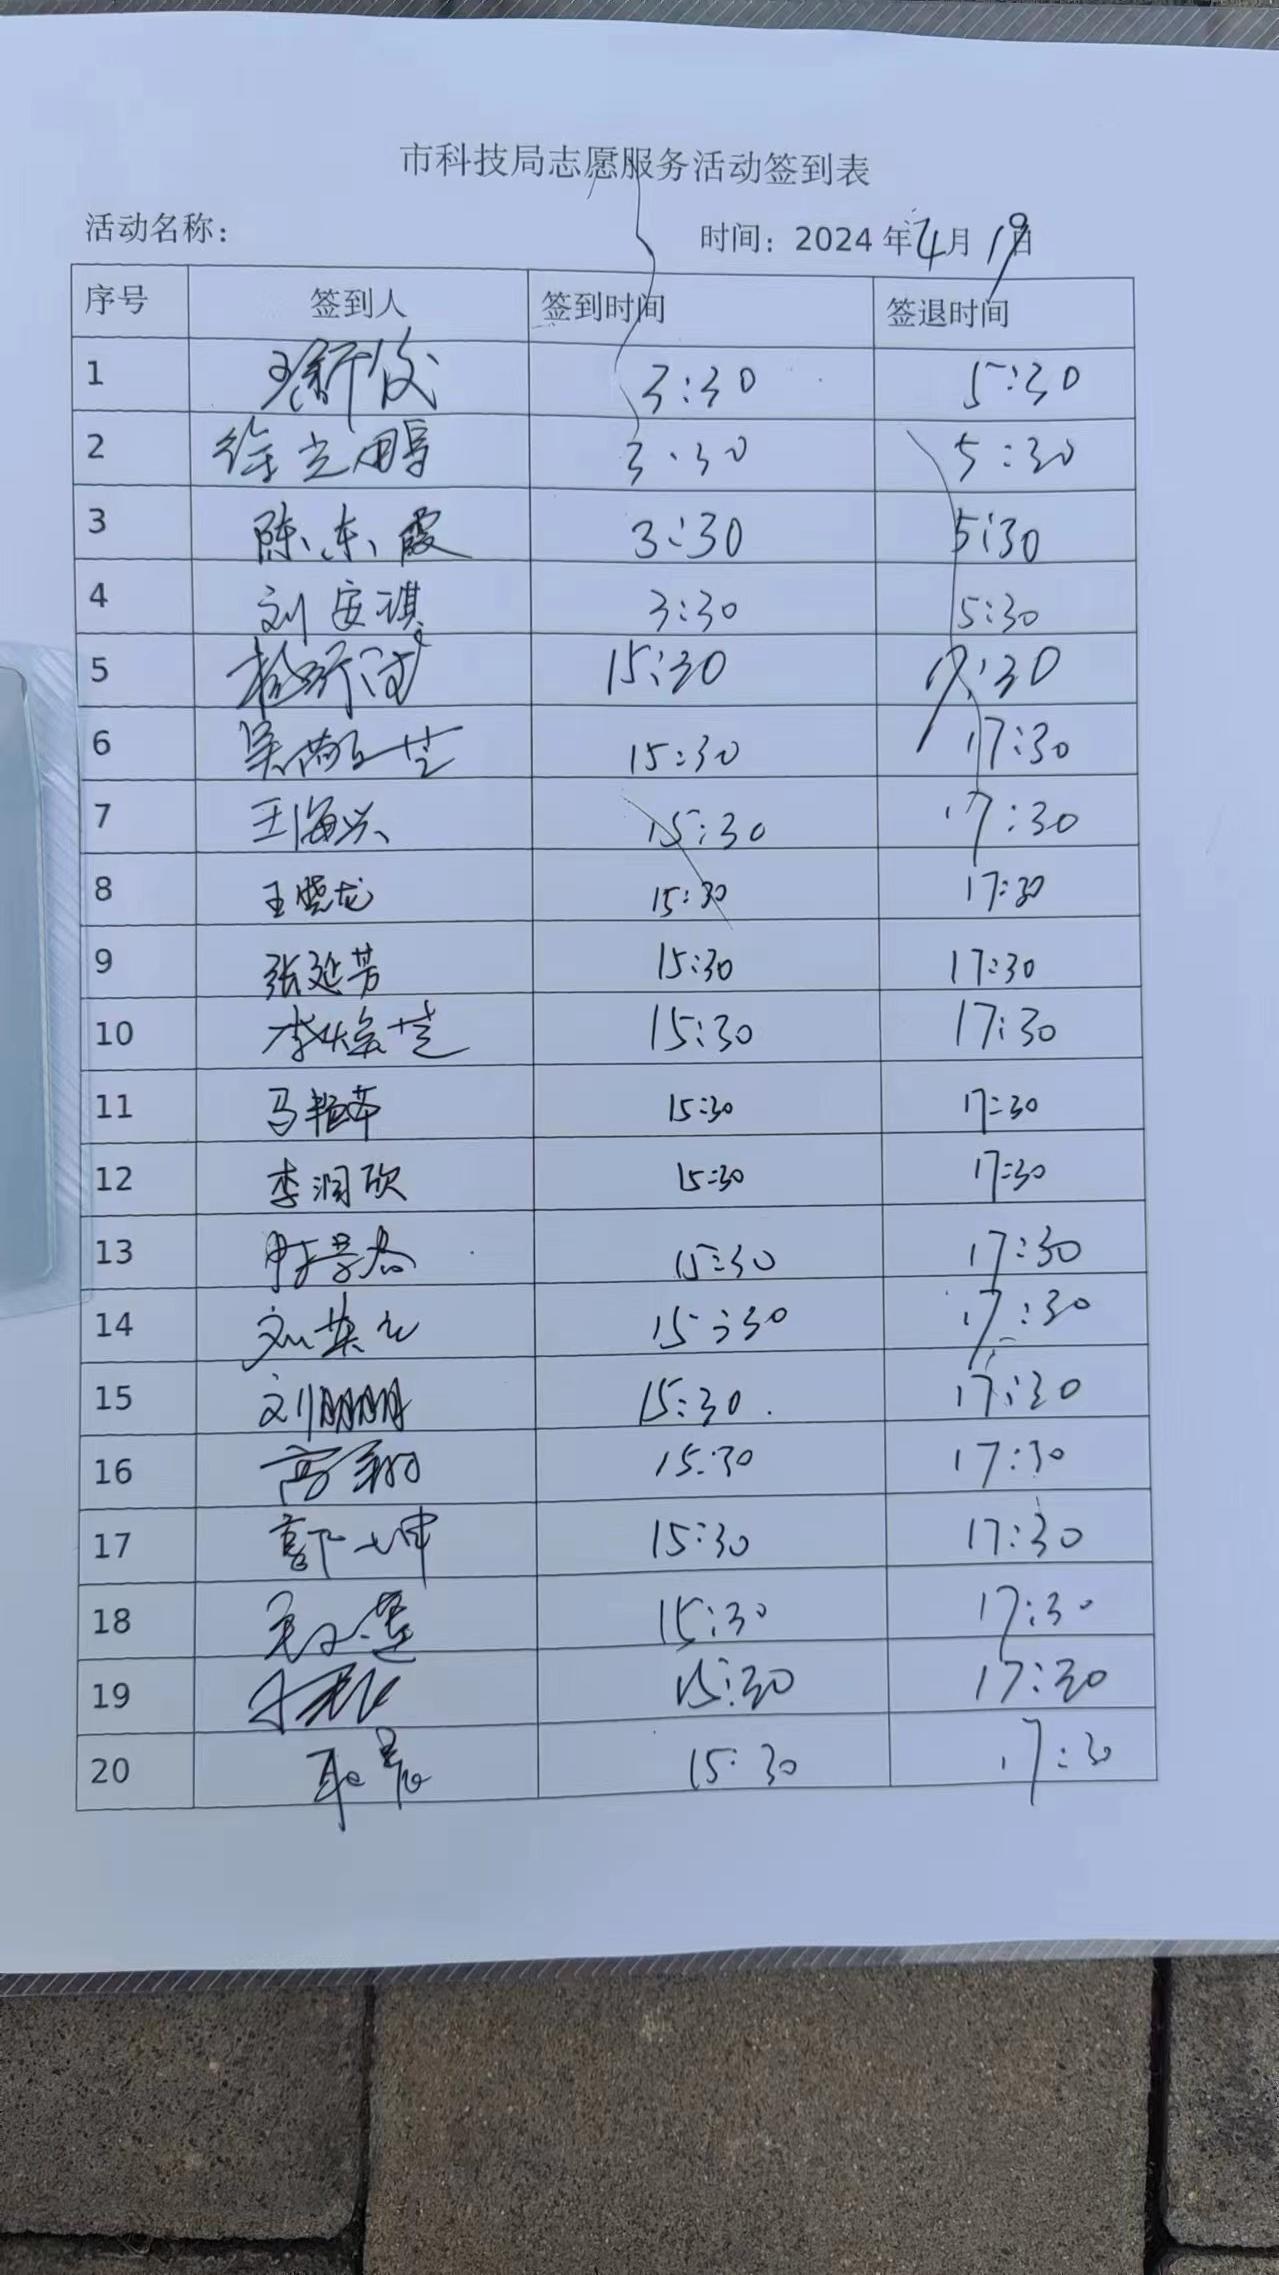 市科技局志愿服务活动签到表
活动名称: 时间: 2024 年4月19日
序号 签到人 签到时间 签退时间
1 3:30 5:30
2 徐 3:30 5:30
3 陈东霞 3:30 5:30
4 刘安琪 3:30 5:30
5 15:30 17:30
6 吴 15:30 17:30
7 王海兴 15:30 17:30
8 王晓龙 15:30 17:30
9 张延芳 15:30 17:30
10 李 15:30 17:30
11 马艳苹 15:30 17:30
12 李润欣 15:30 17:30
13 15:30 17:30
14 刘 15:30 17:30
15 刘朋朋 15:30 17:30
16 高翔 15:30 17:30
17 郭 坤 15:30 17:30
18 15:30 17:30
19 15:30 17:30
20 15:30 17:30